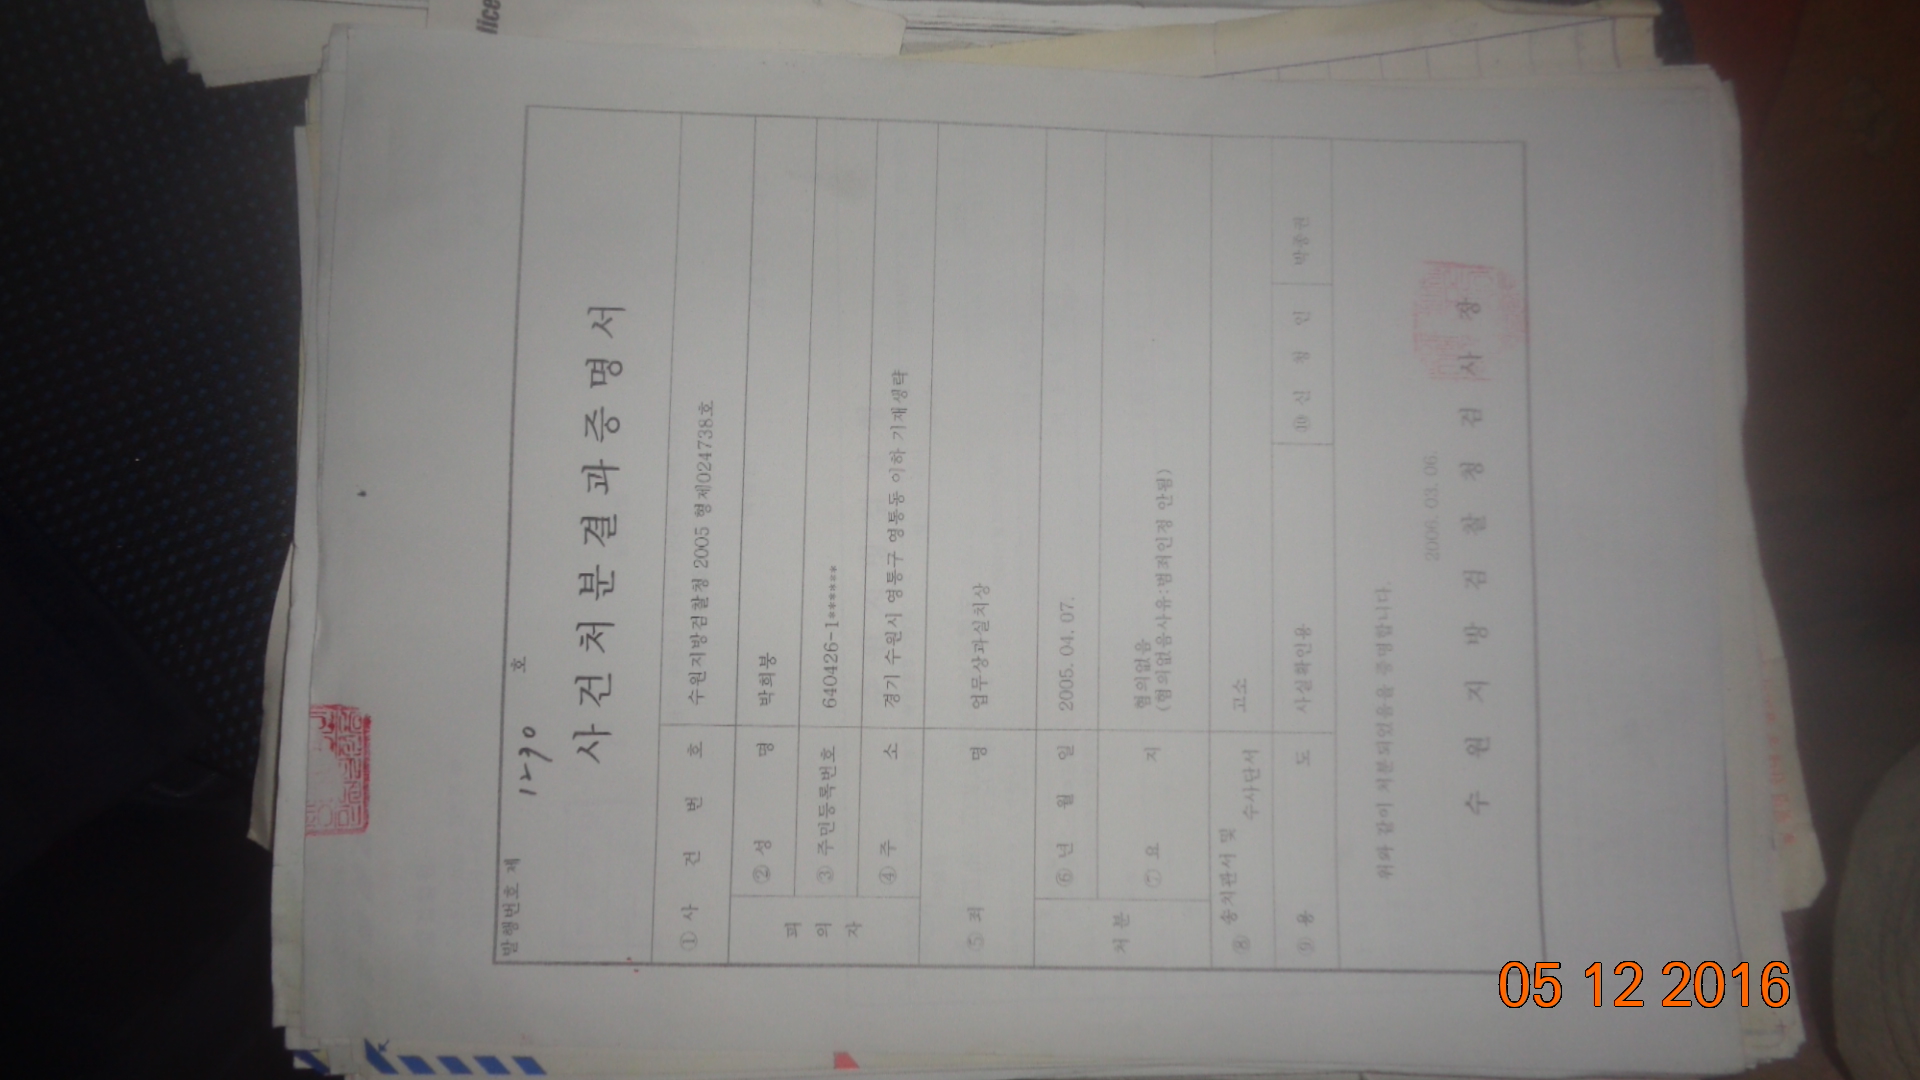 발행번호 제 1290 호
사건처분결과증명서
① 사 건 번 호 수원지방검찰청 2005 형제024738호
피의자
② 성 명 박희붕
③ 주민등록번호 640426-1******
④ 주 소 경기 수원시 영통구 영통동 이하 기재생략
⑤ 죄 명 업무상과실치상
처분
⑥ 년 월 일 2005. 04. 07.
⑦ 요 지 혐의없음
(혐의없음사유:범죄인정 안됨)
⑧ 송치관서 및
수사단서 고소
⑨ 용 도 사실확인용 ⑩ 신 청 인 박종권
위와 같이 처분되었음을 증명합니다.
2006. 03. 06.
수 원 지 방 검 찰 청 검 사 장
05 12 2016